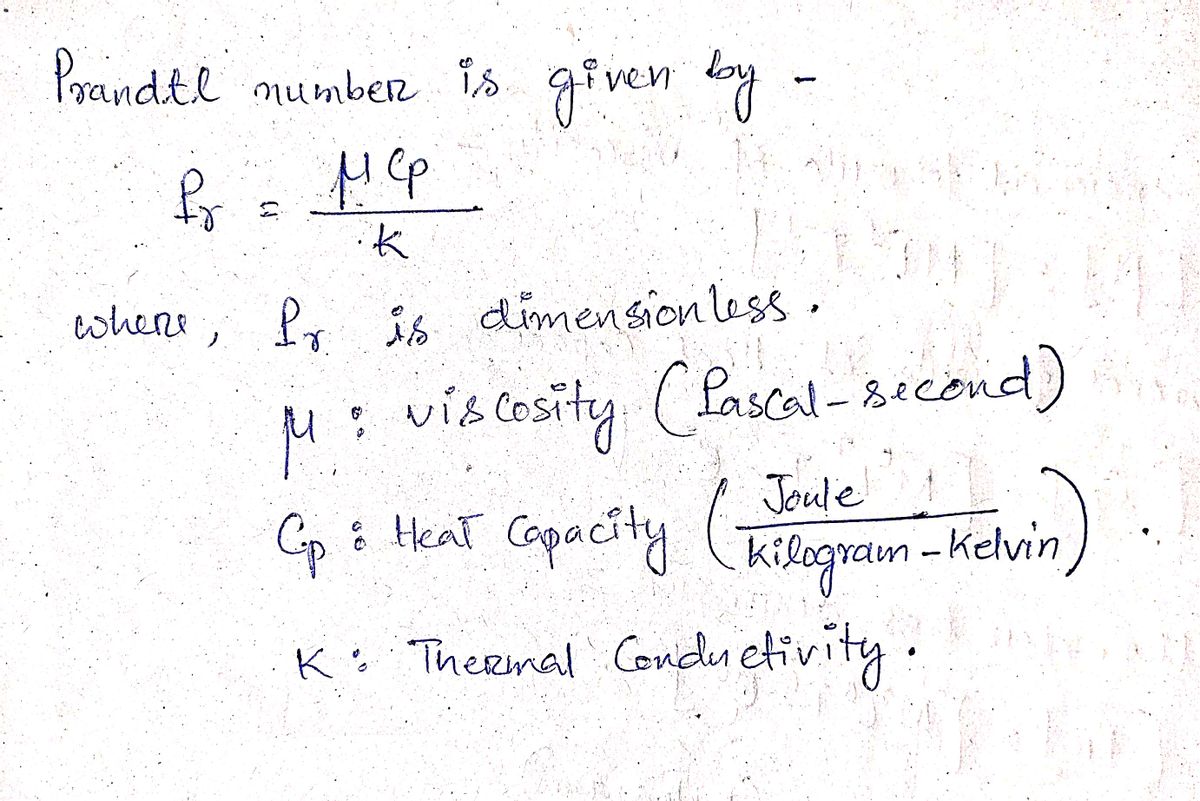 Prandtl number is given by -
Pr = μ Cp / K
where, Pr is dimensionless.
μ : viscosity (Pascal-second)
Cp : Heat Capacity (Joule / kilogram-Kelvin)
K : Thermal Conductivity.